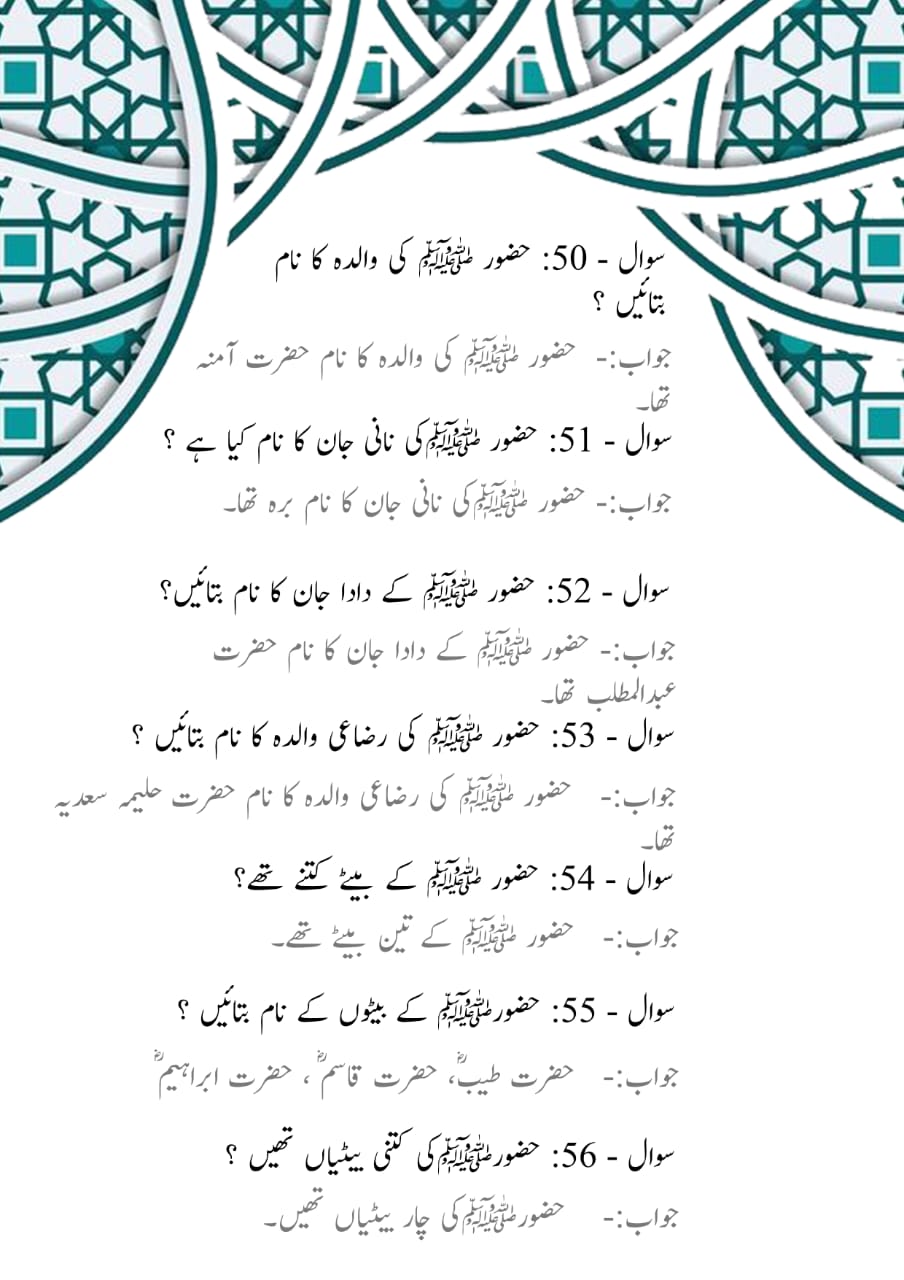 سوال - 50: حضور ﷺ کی والدہ کا نام
بتائیں ؟
جواب:- حضور ﷺ کی والدہ کا نام حضرت آمنہ
تھا۔
سوال - 51: حضور ﷺکی نانی جان کا نام کیا ہے ؟
جواب:- حضور ﷺکی نانی جان کا نام برہ تھا۔
سوال - 52: حضور ﷺ کے دادا جان کا نام بتائیں؟
جواب:- حضور ﷺ کے دادا جان کا نام حضرت
عبدالمطلب تھا۔
سوال - 53: حضور ﷺ کی رضاعی والدہ کا نام بتائیں ؟
جواب:- حضور ﷺ کی رضاعی والدہ کا نام حضرت حلیمہ سعدیہ
تھا۔
سوال - 54: حضور ﷺ کے بیٹے کتنے تھے؟
جواب:- حضور ﷺ کے تین بیٹے تھے۔
سوال - 55: حضورﷺ کے بیٹوں کے نام بتائیں ؟
جواب:- حضرت طیبؓ، حضرت قاسمؓ ، حضرت ابراہیمؓ
سوال - 56: حضورﷺکی کتنی بیٹیاں تھیں ؟
جواب:- حضورﷺکی چار بیٹیاں تھیں۔